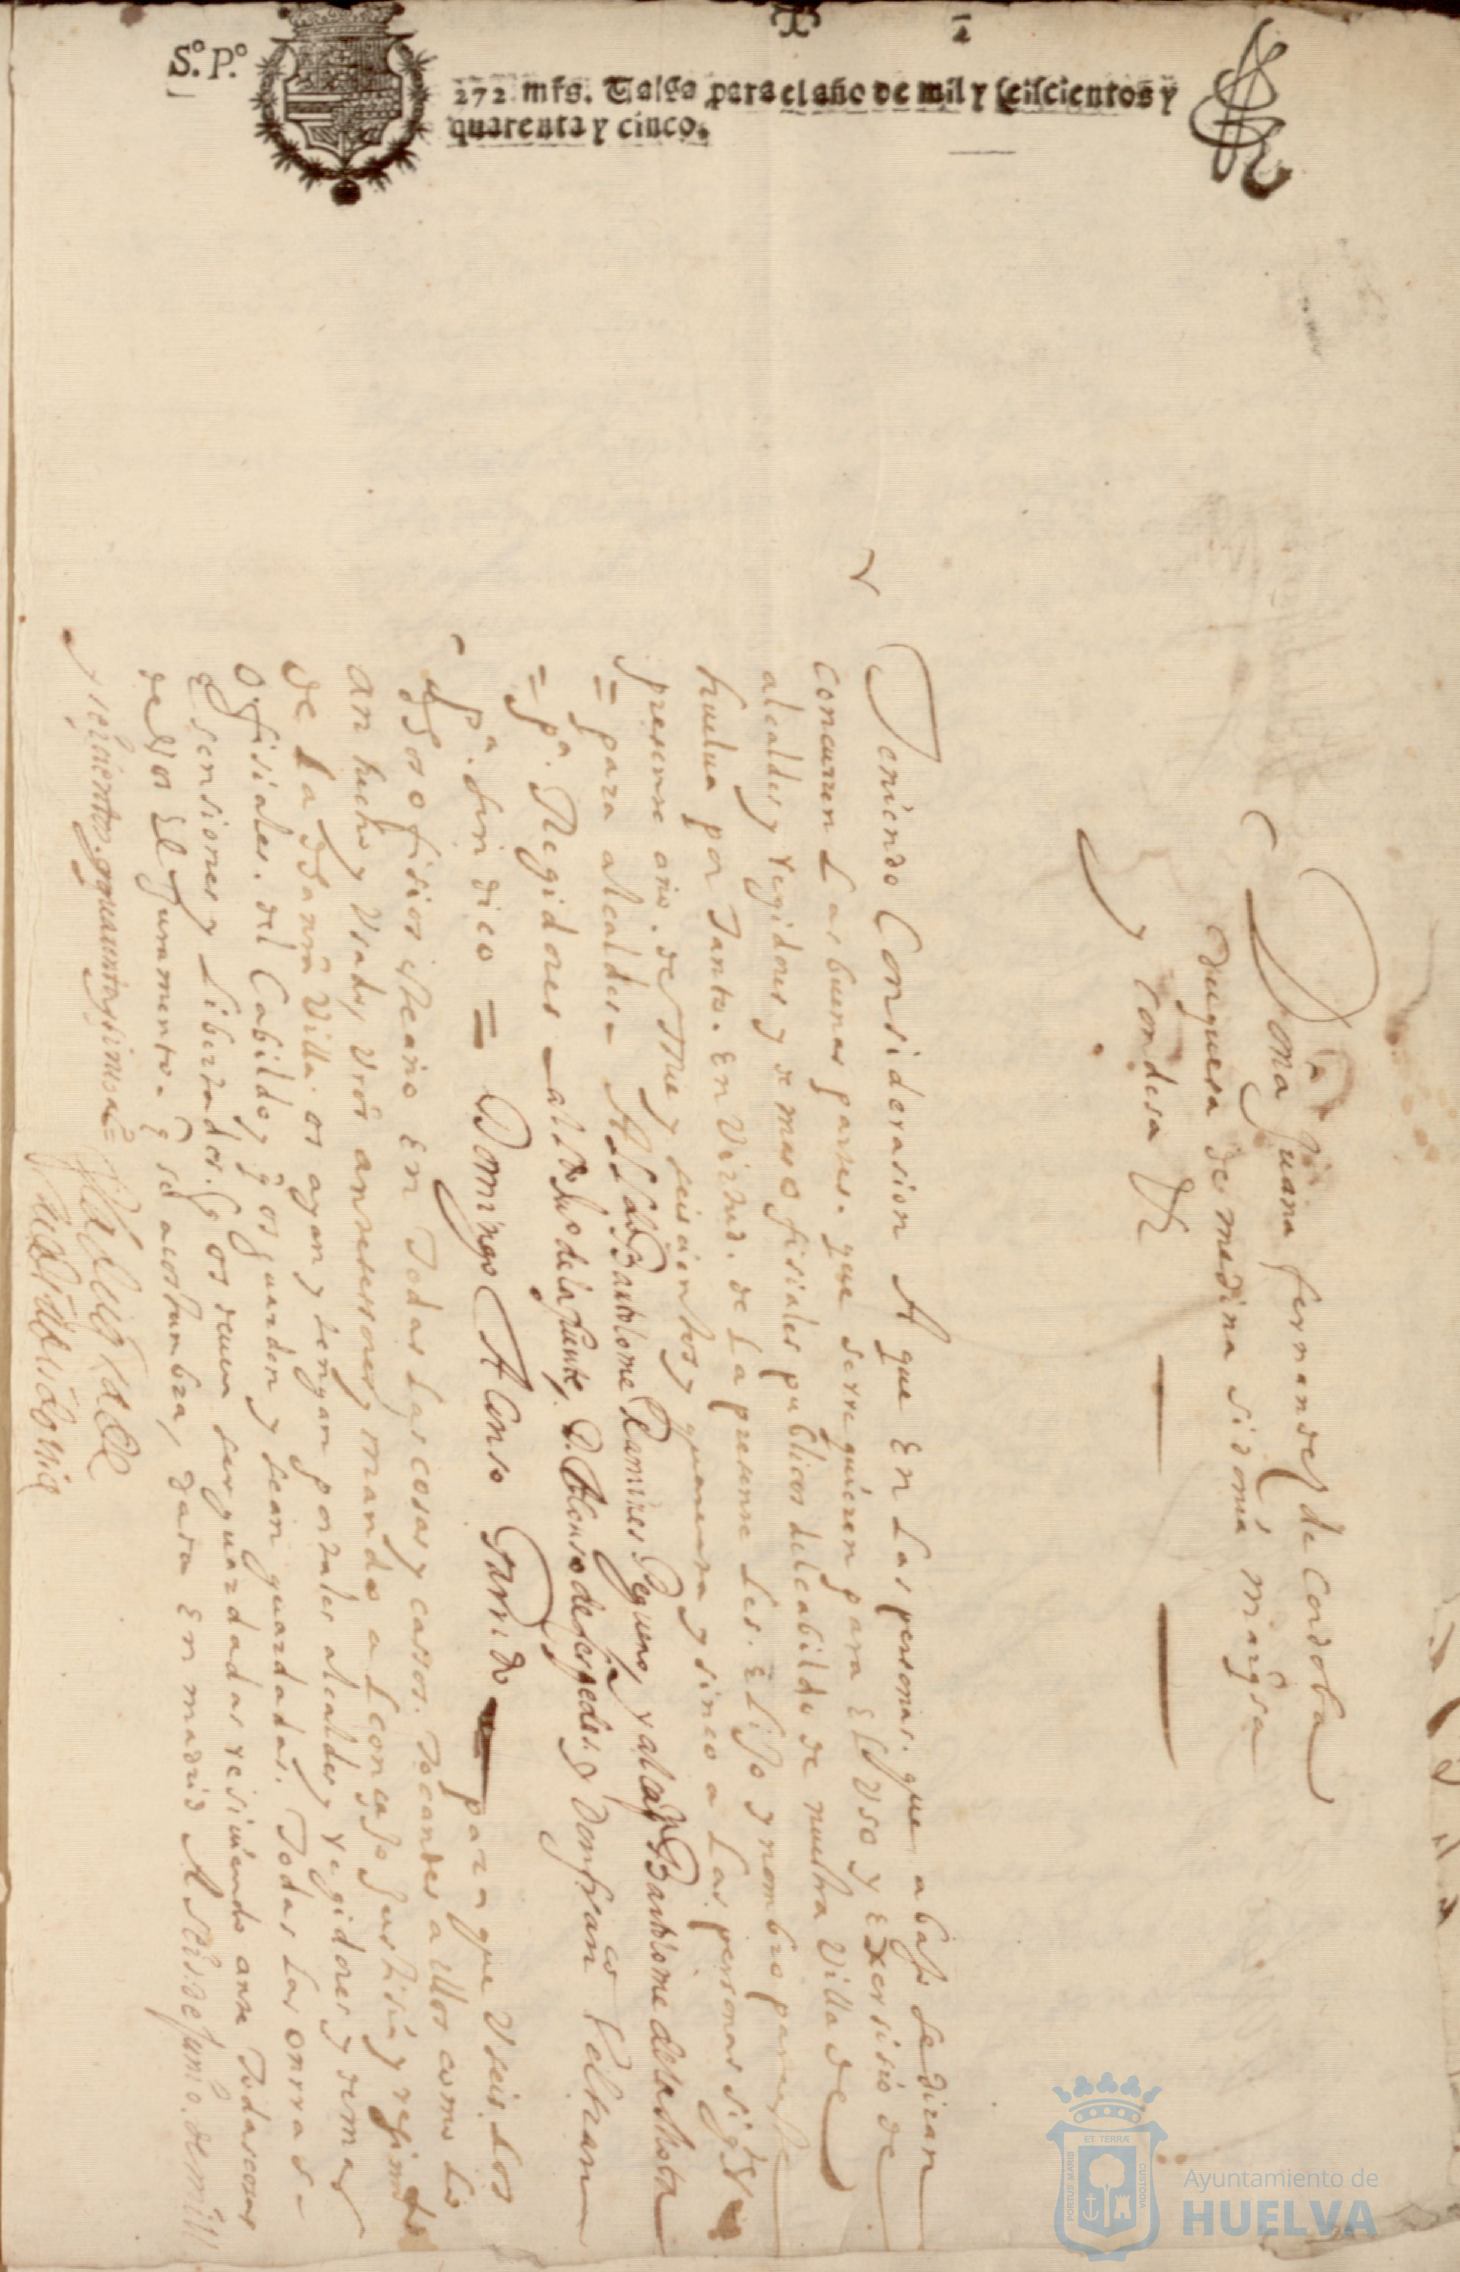 S.º P.º
272 mrs. Talla para el año de mil y seiscientos y
quarenta y cinco.
Doña Juana fernandez de Cordoba
duquesa de medina sidonia marqsa
y Condesa &
Teniendo Consideraçion A que En Las personas. que abaxo se diran
Concurren Las buenas partes. que se rrequieren para El Uso y Exersisio de
alcaldes y regidores y demas ofisiales publicos del cabildo de nuestra Villa de
huelua por Tanto. En Virtud. de La presente Les. Elijo y nombro para este
presente año. de mil y seisientos y quarenta y sinco a Las personas sigtes
= para alcaldes - A Bartolome Ramires Pegueno, y al Bartolome de la Mota
= pa. Regidores - al de la fuente, D. Alonso de sespedes y Don franco Beltran
pa. sindico = Domingo Alonso Garrido para que Useis. Los
dhos ofisios este año En Todas Las cosas y cassos. Tocantes a ellos como Lo
an hecho y Usado, Vros antesessores y mando al consejo Justisia y regimto
de La dha nra Villa os ayan y tengan por tales alcaldes y regidores y demas
Ofisiales. del Cabildo y q os guarden y sean guardadas. Todas Las onrras -
Esensiones y Libertades. q os deuen ser guardadas resiuiendo ante Todas cosas
de Vos El Juramento. q se acostumbra, data En madrid A seis de Junio. de mill
y seisientos. y quarenta y sinco as =
La Duqsa de
Medina Sidonia
PORTUS MARIS
ET TERRÆ
CUSTODIA
Ayuntamiento de
HUELVA